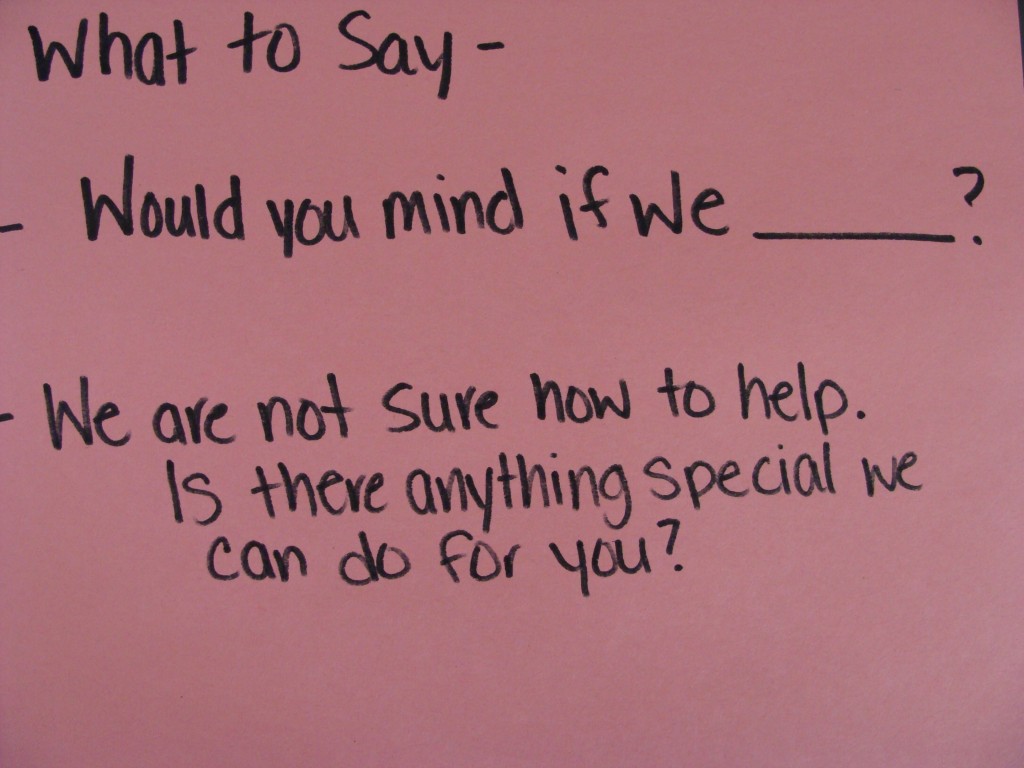 What to Say -
- Would you mind if we ______?
- We are not sure how to help.
Is there anything special we
can do for you?